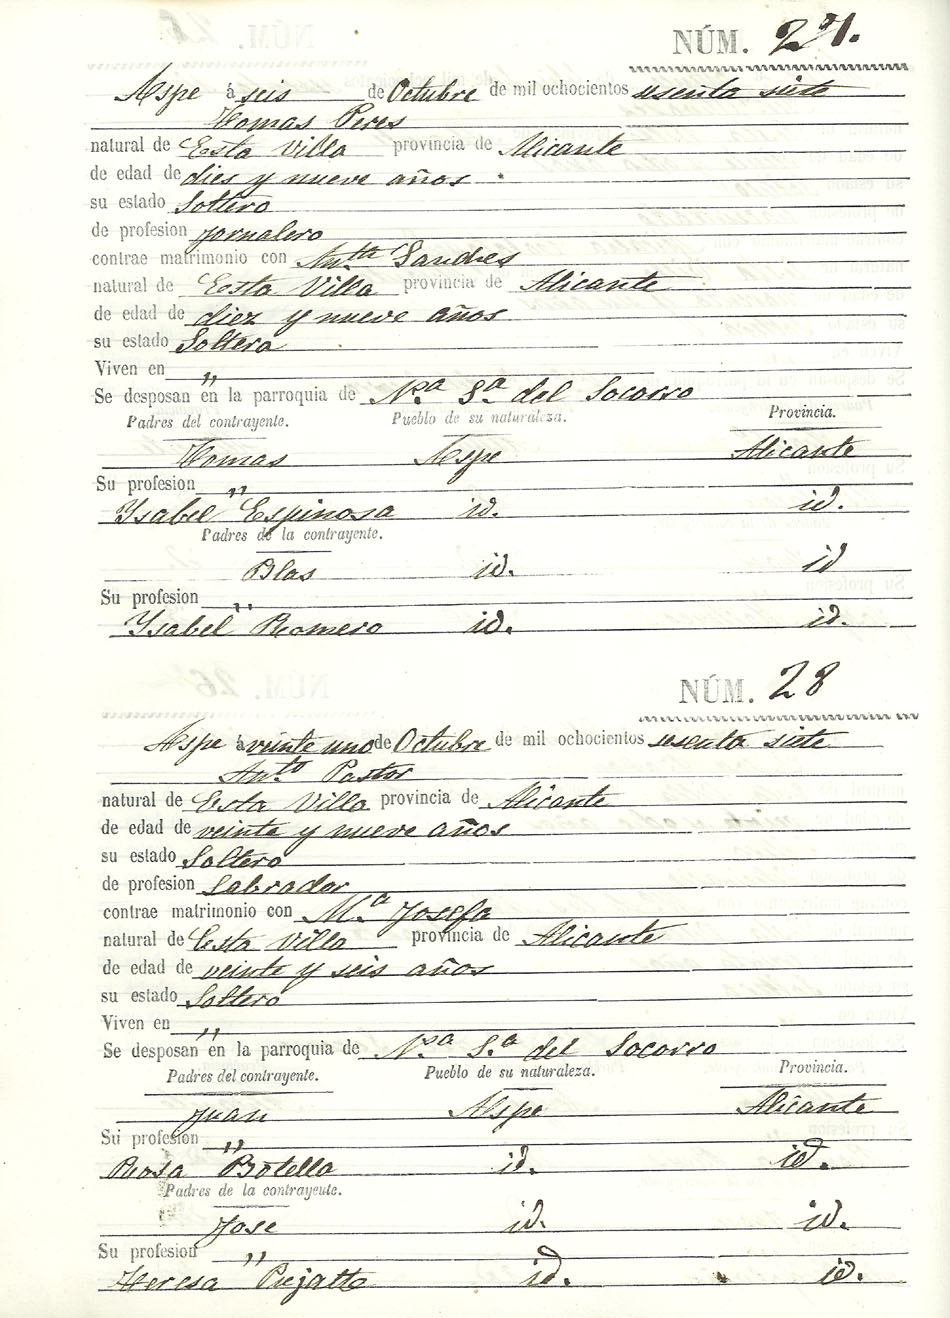 NÚM. 27.
Aspe á seis de Octubre de mil ochocientos sesenta siete
Tomas Peres
natural de Esta Villa provincia de Alicante
de edad de dies y nueve años
su estado Soltero
de profesion Jornalero
contrae matrimonio con Anta Sandres
natural de Esta Villa provincia de Alicante
de edad de diez y nueve años
su estado Soltera
Viven en "
Se desposan en la parroquia de N.sa S.a del Socorro
Padres del contrayente. Pueblo de su naturaleza. Provincia.
Tomas Aspe Alicante
Su profesion "
Ysabel Espinosa id. id.
Padres de la contrayente.
Blas id. id
Su profesion "
Ysabel Romero id. id.
NÚM. 28
Aspe á veinte uno de Octubre de mil ochocientos sesenta siete
Anto Pastor
natural de Esta Villa provincia de Alicante
de edad de veinte y nueve años
su estado Soltero
de profesion Labrador
contrae matrimonio con M.a Josefa
natural de Esta Villa provincia de Alicante
de edad de veinte y seis años
su estado Soltero
Viven en "
Se desposan en la parroquia de N.sa S.a del Socorro
Padres del contrayente. Pueblo de su naturaleza. Provincia.
Juan Aspe Alicante
Su profesion "
Rosa Botella id. id.
Padres de la contrayente.
Jose id. id.
Su profesion "
Teresa Pujalte id. id.